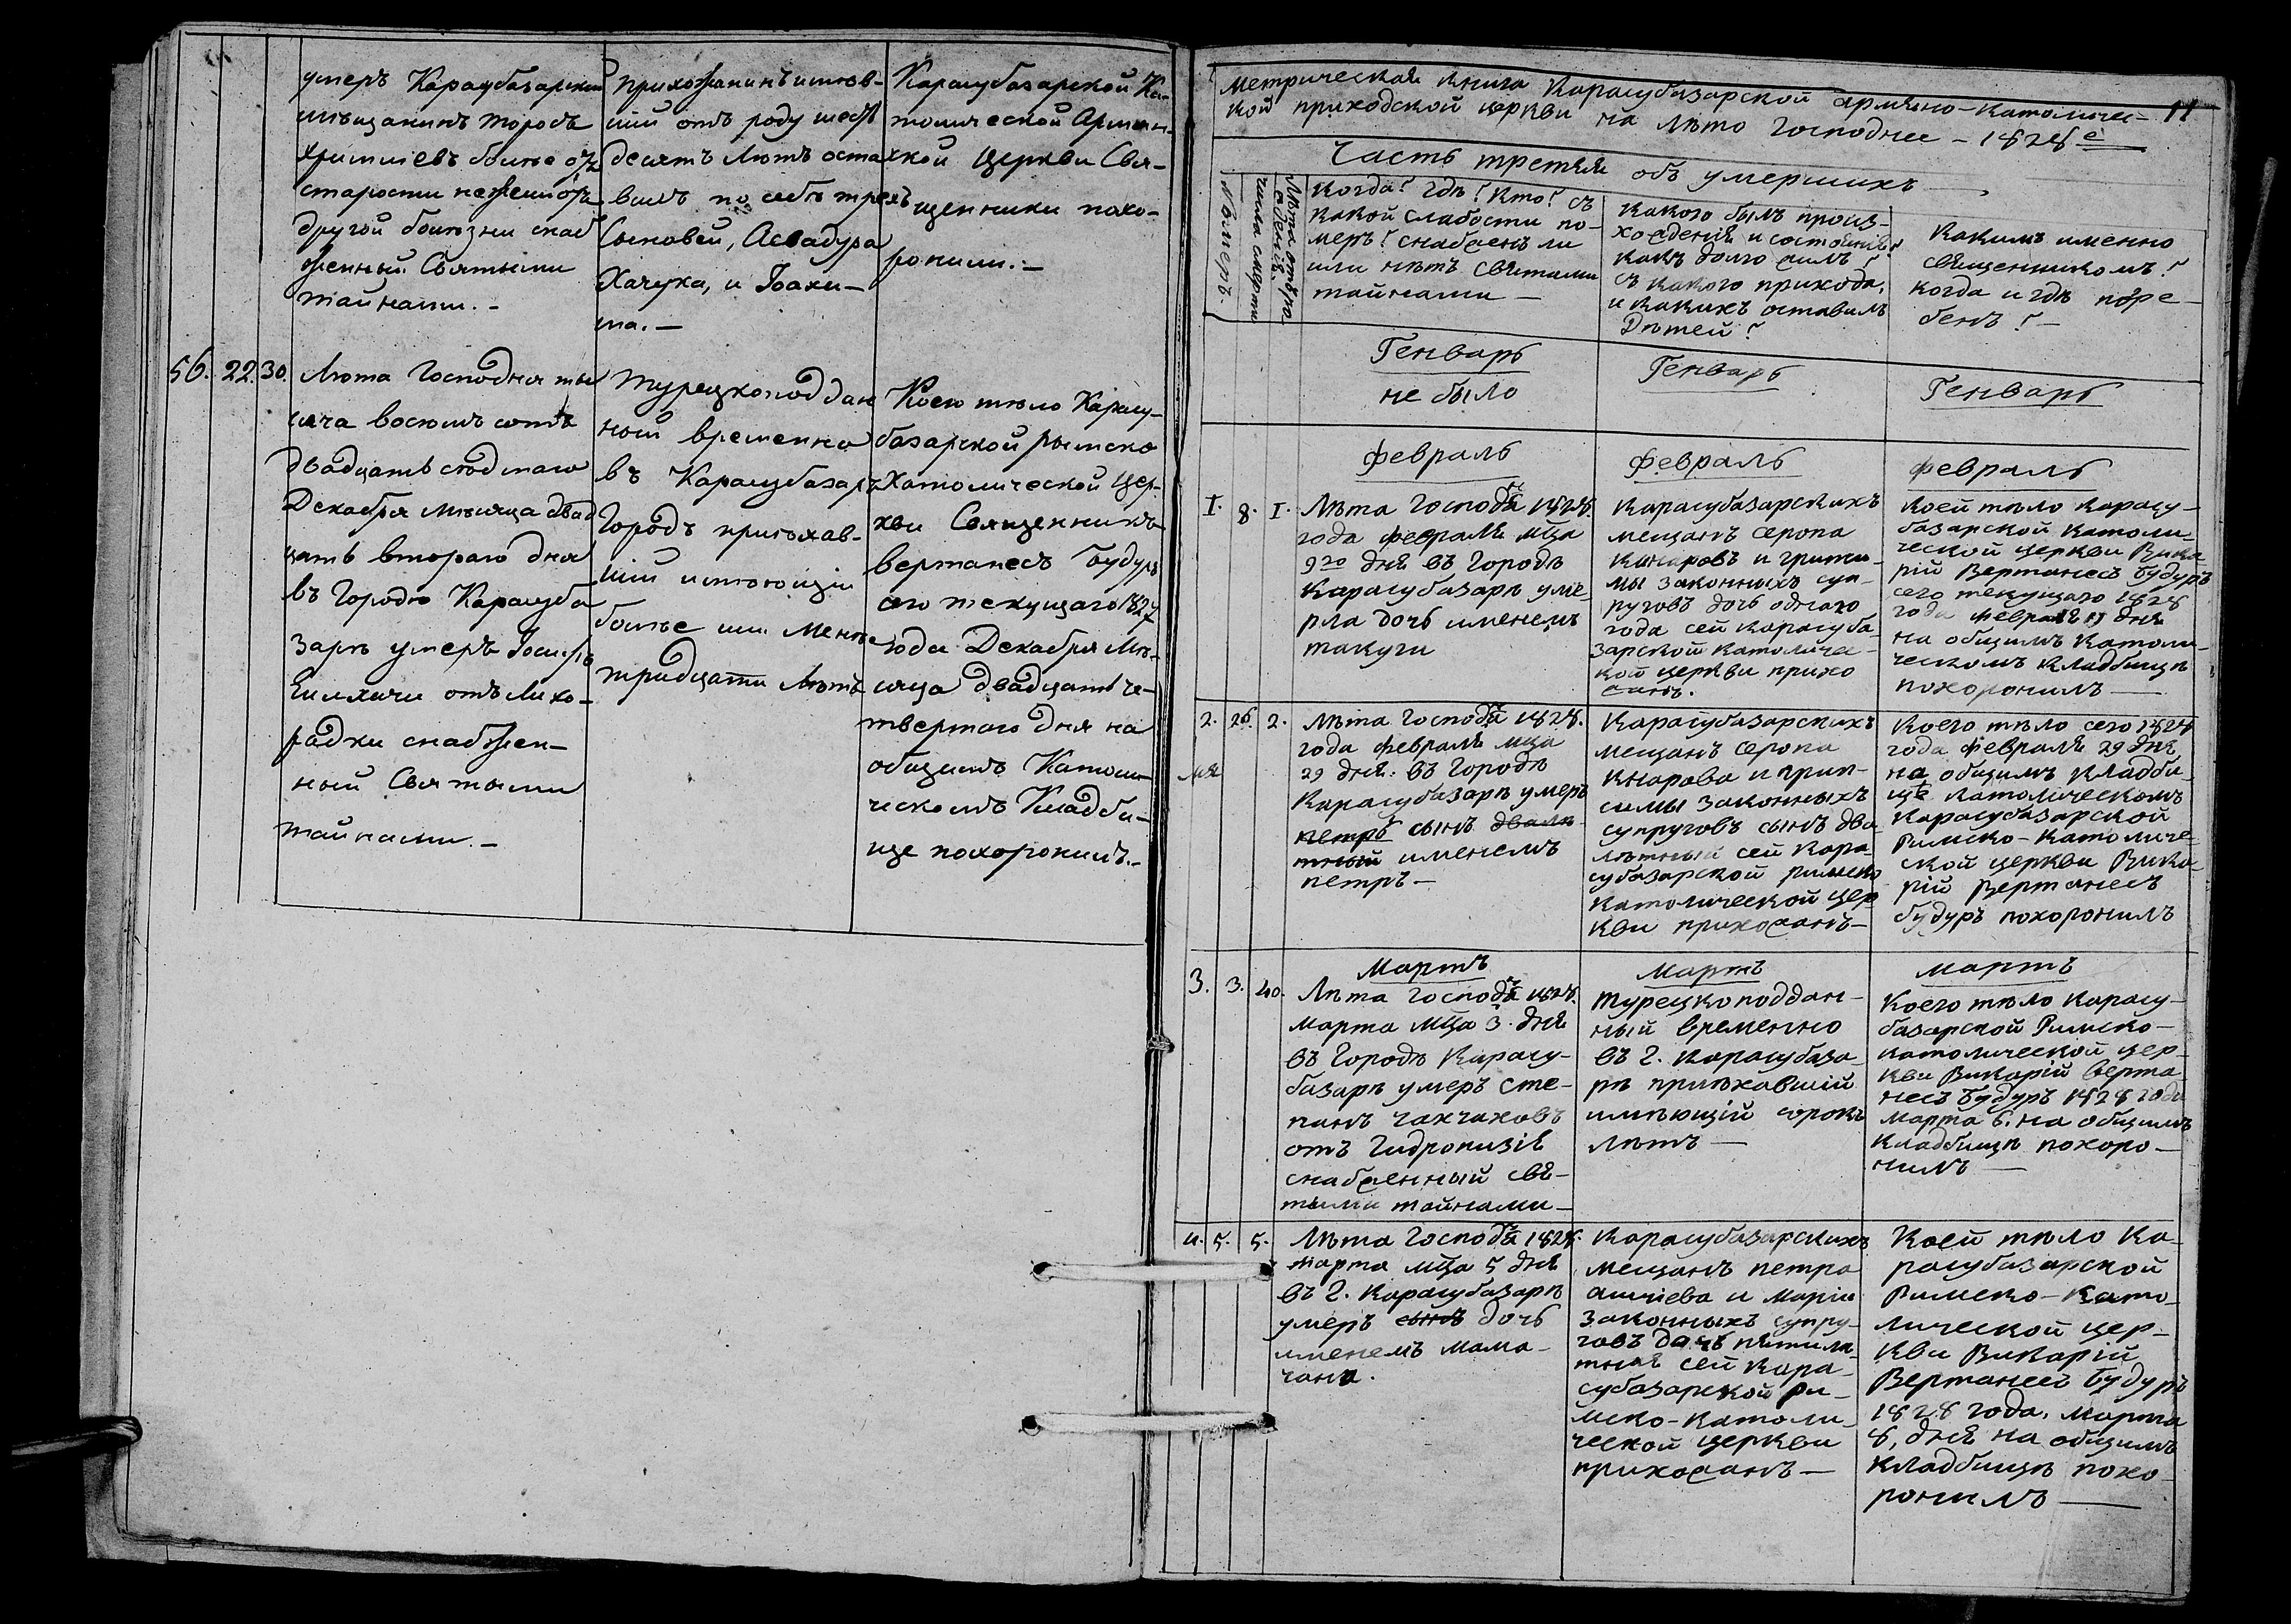 умеръ Карасубазарскій
мѣщанинъ Торосъ
болѣе отъ
старости нежели отъ
другой болѣзни снаб
женный Святыми
тайнами. –
прихожанинъ имѣв-
шій отъ роду шестъ
десятъ лѣтъ оста
вилъ по себѣ трехъ
Сыновей, Асвадура
Хачука, и Іоаки-
ма. –
Карасубазарской Ка-
толической Армян-
ской церкви Свя-
щенники похо-
ронили. –
56. 22. 30.
Лѣта Господня ты
сяча восемъ сотъ
двадцать седьмаго
Декабря мѣсяца двад
цать втораго дня
въ Городѣ Карасуба
зарѣ умеръ Іосифъ
отъ Лихо-
радки снабжен-
ный Святыми
тайнами. –
Турецкоподдан
ный временно
въ Карасубазаръ
Городъ пріѣхав-
шій имѣющій
болѣе или менѣе
тридцати лѣтъ
Коего тѣло Карасу-
базарской римско
Католической Цер-
кви Священникъ
Вертанесъ Будуръ
сего текущаго 1827
года Декабря мѣ-
сяца двадцать че-
твертаго дня на
общемъ Католи-
ческомъ Кладби-
ще похоронилъ. –
Метрическая книга Карасубазарской Армяно-Католичес- 11
кой приходской церкви на лѣто Господнее – 1828е
Часть третяя объ умершихъ
Номеръ.
числа смерти
Лѣта отъ ро
жденія.
Когда? гдѣ? Кто? съ
какой слабости по-
меръ? снабженъ ли
или нѣтъ святами
тайнами –
Какого былъ произ-
хожденія и состоянія?
какъ долго жилъ?
съ какого прихода,
и какихъ оставилъ
Дѣтей?
Какимъ именно
священникомъ?
когда и гдѣ погре-
бенъ? –
Генварь
не было
Генварь
Генварь
Февраль
Февраль
Февраль
1. 8. 1.
Лѣта Господня 1828.
года февраля мца
9го дня въ Городѣ
Карасубазарѣ уме-
рла дочь именемъ
такуги
Карасубазарскихъ
мещанъ Серопа
Кнаровъ и грипси-
мы законныхъ суп-
руговъ дочь одного
года сей Карасуба-
зарской Католичес-
кой церкви прихо
жанъ.
Коей тѣло Карасу-
базарской Католи-
ческой церкви Вика
рій Вертанесъ Будуръ
сего текущаго 1828
года февраля 11 дня
на общимъ Католи-
ческомъ кладбищѣ
похоронилъ –
2. 26. 2.
Лѣта Господня 1828.
года февраля мца
29 дня: въ Городѣ
Карасубазарѣ умеръ
петръ сынъ двалѣ-
тный именемъ
петръ –
Карасубазарскихъ
мещанъ Серопа
Кнарова и грип-
симы законныхъ
супруговъ сынъ два
лѣтный сей Кара-
субазарской римско
католической цер-
кви прихожанъ –
Коего тѣло сего 1828
года февраля 29 дня
на общимъ кладби-
щѣ католическомъ
Карасубазарской
Римско-Католиче-
ской церкви Вика-
рій Вертанесъ
будуръ похоронилъ
Мартъ
Мартъ
Мартъ
3. 3. 40.
Лѣта Господня 1828.
марта мца 3. дня
въ Городѣ Карасу-
базарѣ умеръ Сте-
панъ Чахчаховъ
отъ Гидропизіѣ
снабженный свя-
тыми тайнами –
Турецкоподдан-
ный временно
въ г. Карасубаза-
рѣ пріѣхавшій
имѣющій сорокъ
лѣтъ –
Коего тѣло Карасу-
базарской Римско-
католической цер-
кви Викарій Верта-
несъ Будуръ 1828 года
марта 6. на общимъ
кладбищѣ похоро-
нилъ –
4. 5. 5.
Лѣта Господня 1828.
марта мца 5 дня
въ г. Карасубазарѣ
умеръ сынъ дочь
именемъ мама-
чана.
Карасубазарскихъ
мещанъ петра
и Маріи
законныхъ супру-
говъ дочь пятилѣ-
тняя сей Кара-
субазарской ри-
мско-католи-
ческой церкви
прихожанъ –
Коей тѣло Ка-
расубазарской
Римско-Като-
лической цер-
кви Викарій
Вертанесъ Будуръ
1828 года, марта
8, дня на общимъ
кладбищѣ похо-
ронилъ –